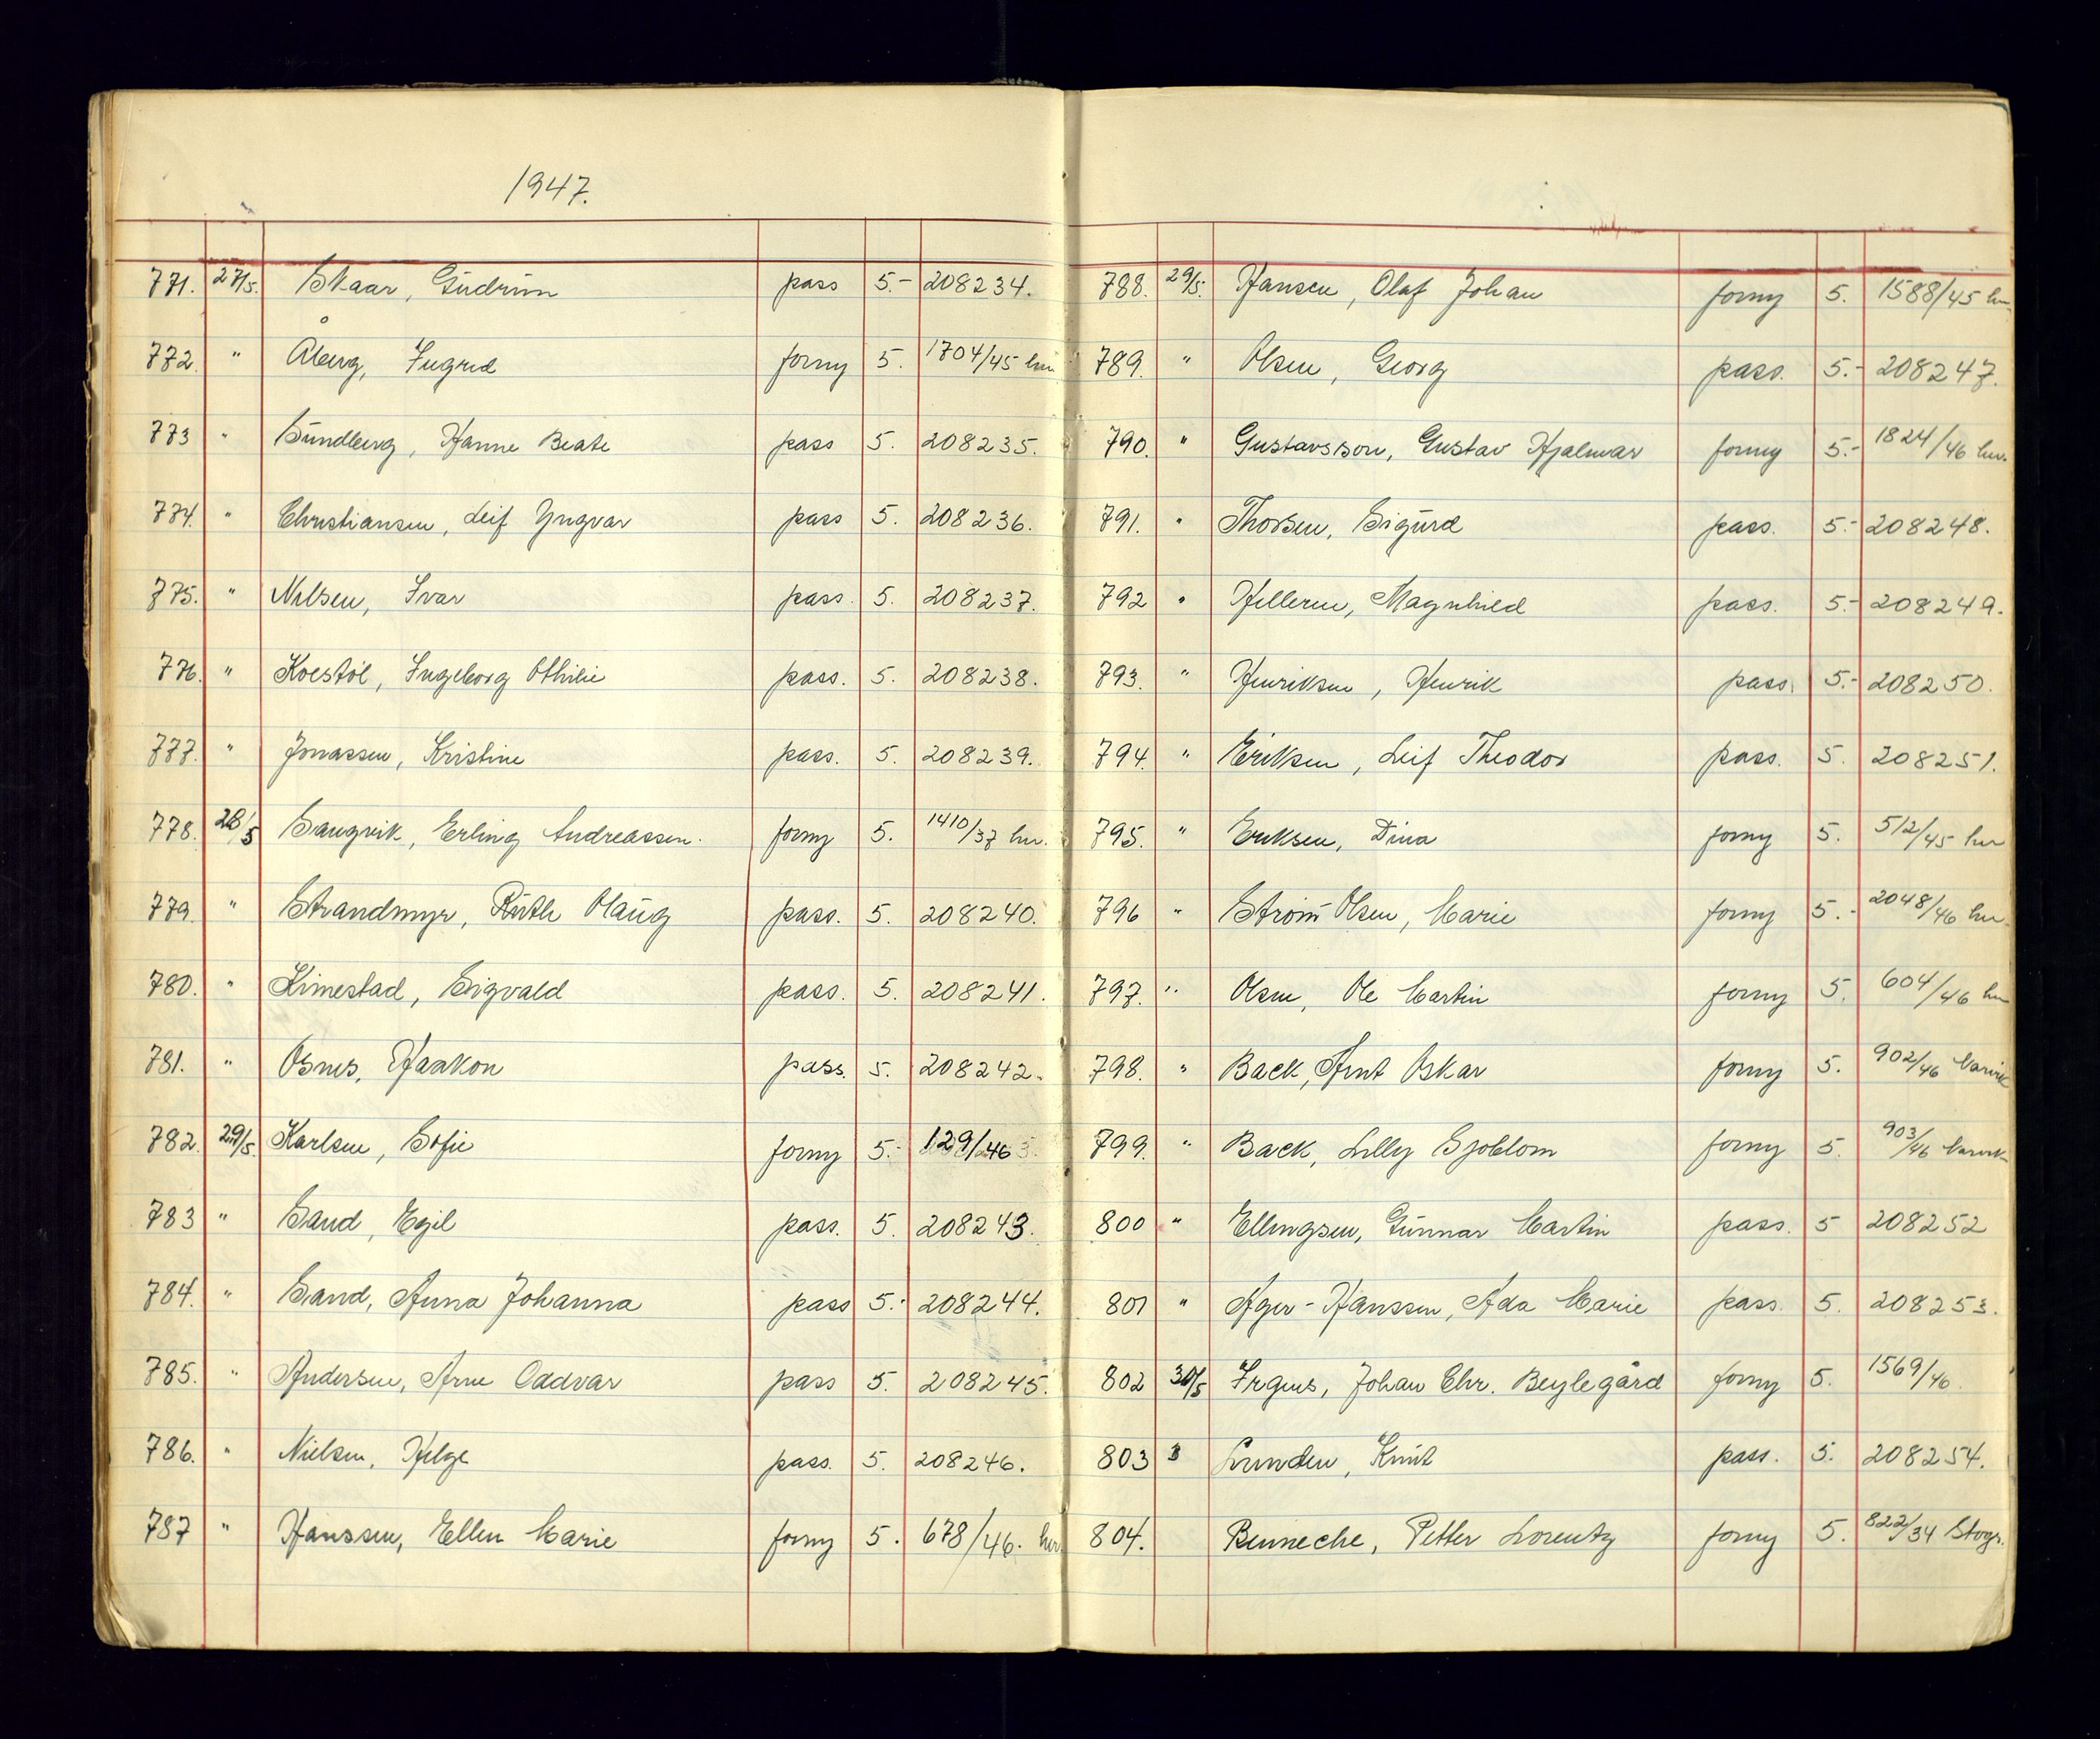 1947.
771. 27/5. Skaar, Gudrun pass 5.- 208234.
772. " Åberg, Ingrid forny 5. 1704/45 her
773 " Sundberg, Hanne Beate pass 5. 208235.
774. " Christiansen, Leif Yngvar pass 5. 208236.
775. " Nilsen, Ivar pass. 5. 208237.
776. " Koestøl, Ingeborg Othilie pass. 5. 208238.
777. " Jonassen, Kristine pass. 5. 208239.
778. 28/5 Saugvik, Erling Andreassen. forny 5. 1410/37 her.
779. " Strandmyr, Ruth Olaug pass. 5. 208240.
780. " Kimestad, Sigvald pass. 5. 208241.
781. " Osnes, Haakon pass. 5. 208242.
782. 29/5. Karlsen, Sofie forny 5.- 129/46
783 " Sand, Egil pass. 5. 208243.
784. " Sand, Anna Johanna pass 5.- 208244.
785. " Andersen, Arne Oddvar pass 5. 208245.
786. " Nielsen, Helge pass. 5. 208246.
787 " Hanssen, Ellen Marie forny 5. 678/46. her.
788. 29/5. Hansen, Olaf Johan forny 5. 1588/45 her
789. " Olsen, Georg pass. 5.- 208247.
790. " Gustavsson, Gustav Hjalmar forny 5.- 1824/46 her.
791. " Thorsen, Sigurd pass. 5.- 208248.
792 " Helleren, Magnhild pass. 5.- 208249.
793. " Henriksen, Henrik pass. 5.- 208250.
794. " Eriksen, Leif Theodor pass. 5. 208251.
795. " Eriksen, Dina forny 5. 512/45 her
796 " Strøm Olsen, Marie forny 5.- 2048/46 her.
797. " Olsen, Ole Martin forny 5. 604/46 her
798. " Back, Arnt Oskar forny 5. 902/46
799. " Back, Lilly Sjoblom forny 5. 903/46
800 " Ellingsen, Gunnar Martin pass. 5 208252
801 " Ager-Hanssen, Ada Marie pass. 5. 208253.
802 30/5 Irgens, Johan Chr. Beylegård forny 5. 1569/46
803 " Lunden, Knut pass. 5. 208254.
804. Benneche, Petter Lorentz forny 5. 822/34